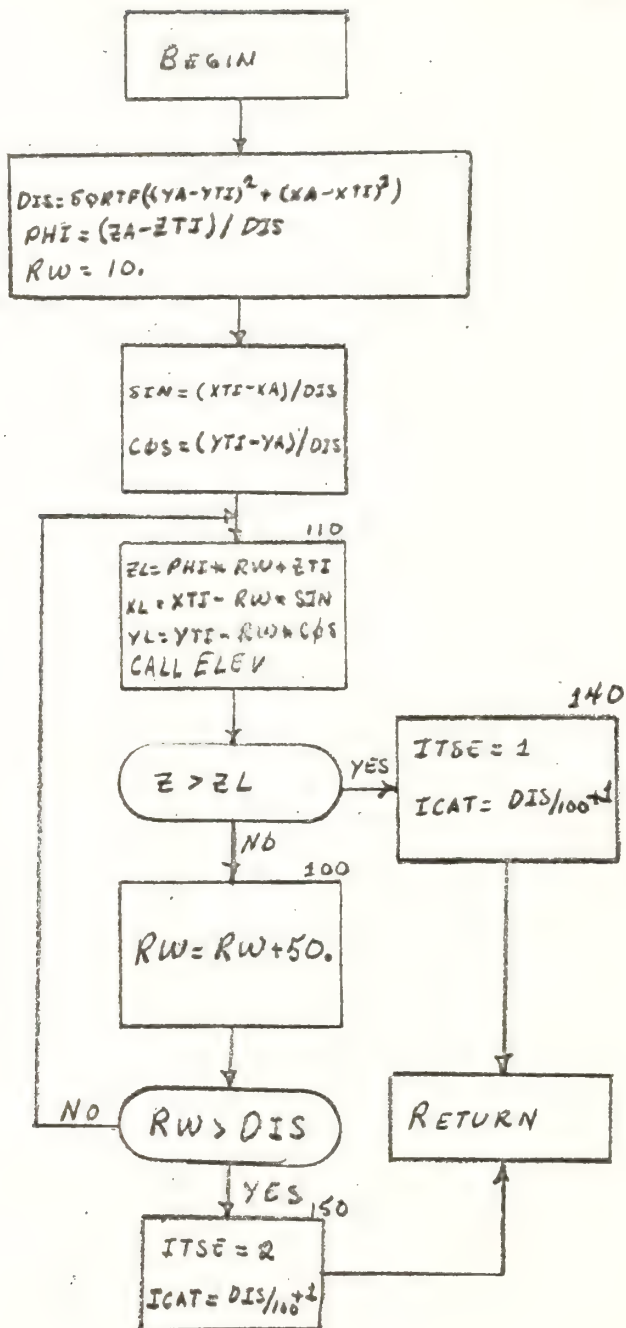 BEGIN
DIS=SQRTF((YA-YTI)²+(XA-XTI)²)
PHI=(ZA-ZTI)/DIS
RW=10.
SIN=(XTI-XA)/DIS
CØS=(YTI-YA)/DIS
110
ZL=PHI*RW+ZTI
XL=XTI-RW*SIN
YL=YTI-RW*CØS
CALL ELEV
Z>ZL
YES
140
ITSE=1
ICAT=DIS/100+1
NØ
100
RW=RW+50.
RW>DIS
NO
RETURN
YES
150
ITSE=2
ICAT=DIS/100+1